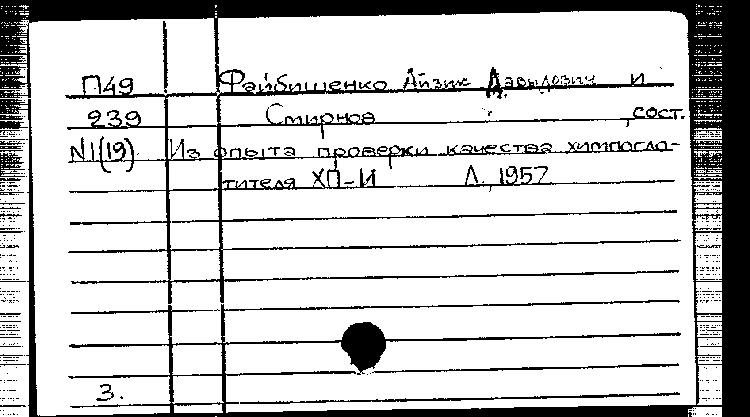 П49 Файбишенко Айзик Давыдович и
239 Смирнов , сост.
N1(19) Из опыта проверки качества химпогло-
тителя ХП-И Л., 1957
3.